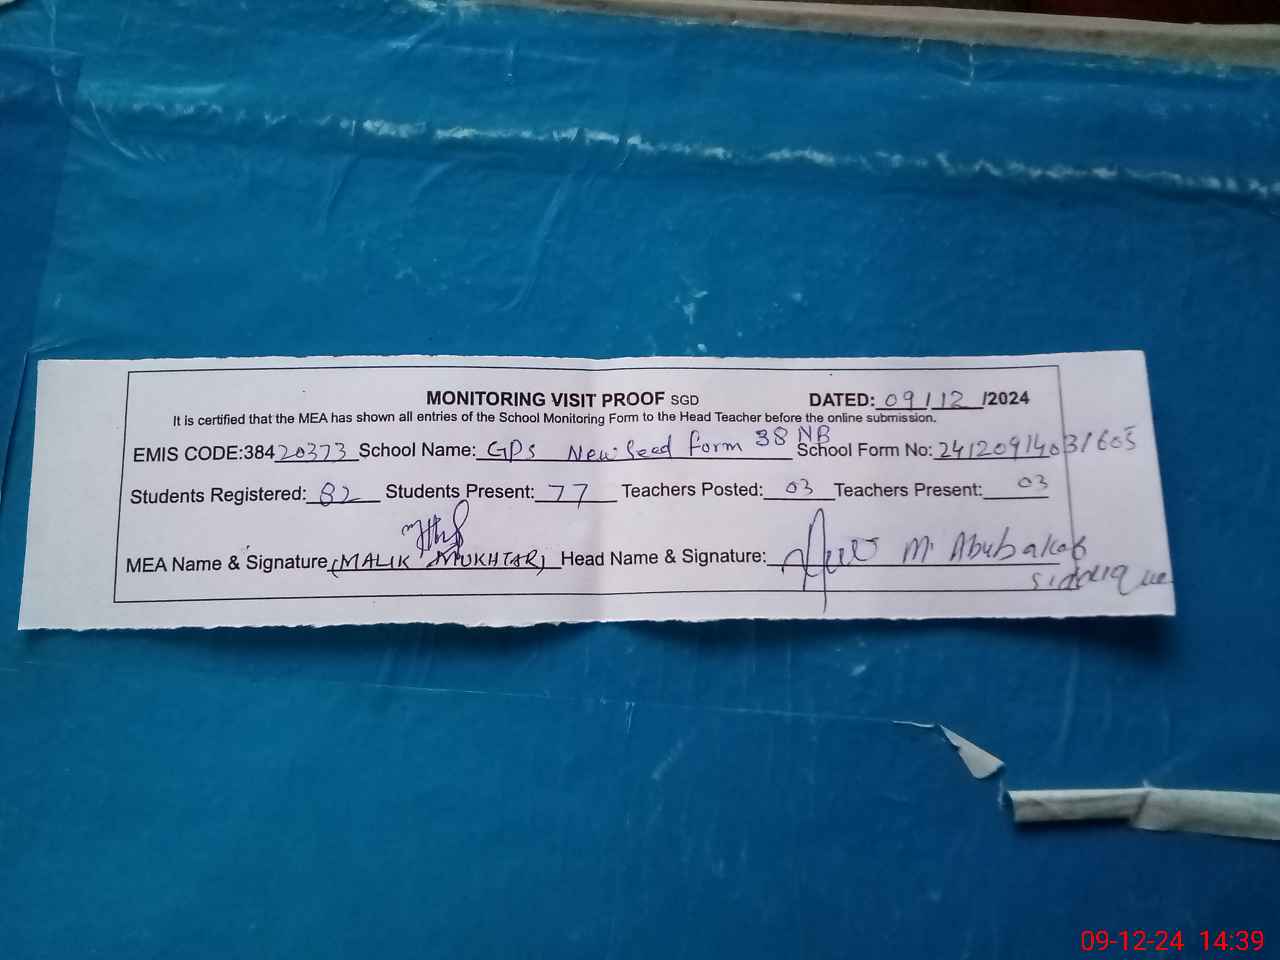 MONITORING VISIT PROOF SGD DATED: 09/12/2024
It is certified that the MEA has shown all entries of the School Monitoring Form to the Head Teacher before the online submission.
EMIS CODE:38420373 School Name: GPS New Seed Form 38 NB School Form No: 24120914031605
Students Registered: 82 Students Present: 77 Teachers Posted: 03 Teachers Present: 03
MEA Name & Signature (MALIK MUKHTAR) Head Name & Signature: M. Abubakar
Siddique
09-12-24 14:39